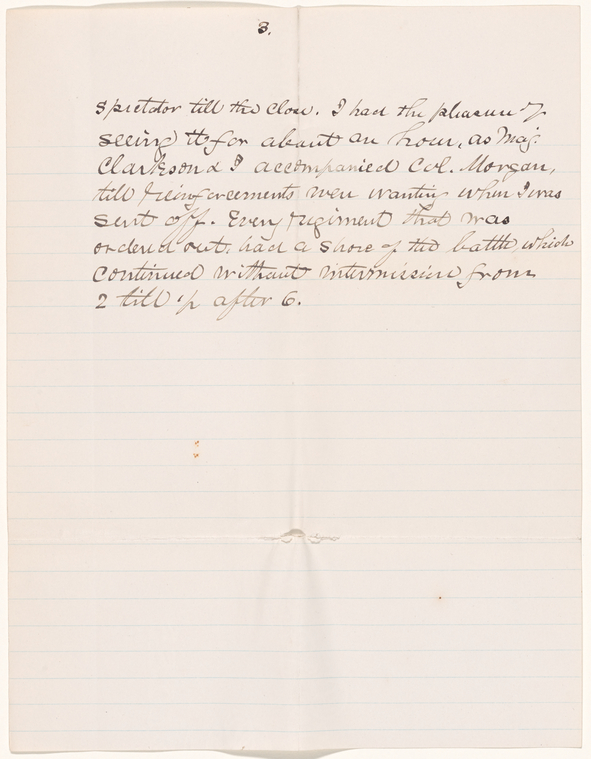 3.
spectator till the close. I had the pleasure of
seeing it for about an hour, as Maj.
Clarkson & I accompanied Col. Morgan,
till reinforcements were wanting when I was
sent off. Every regiment that was
ordered out, had a share of the battle, which
continued without intermission from
2 till ½ after 6.